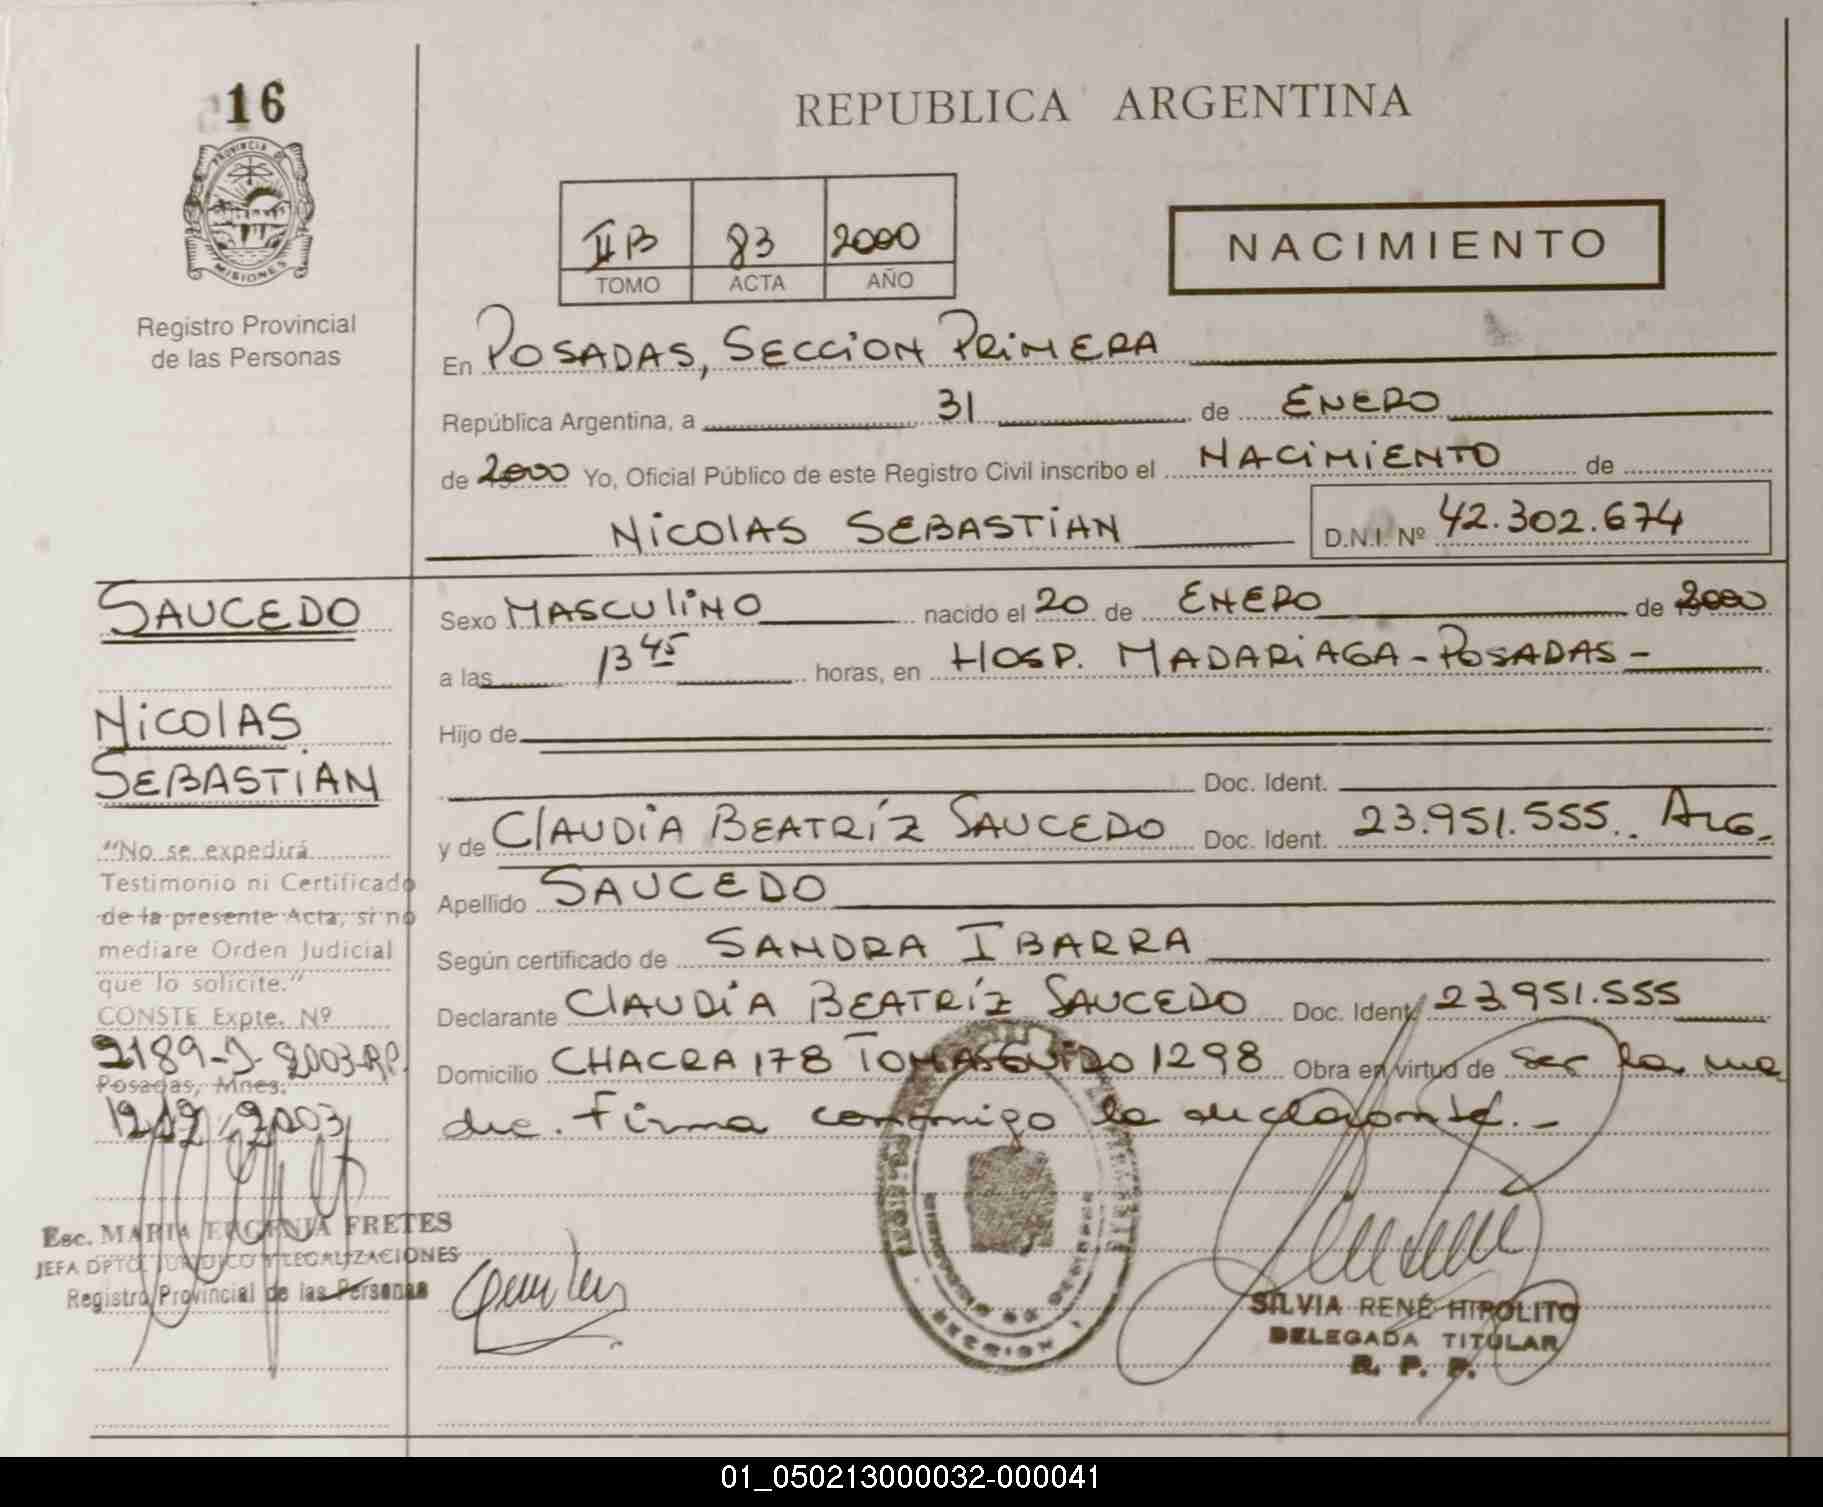 16
PROVINCIA DE
MISIONES
Registro Provincial
de las Personas
REPUBLICA ARGENTINA
II B 83 2000
TOMO ACTA AÑO
NACIMIENTO
En POSADAS, SECCION PRIMERA
República Argentina, a 31 de ENERO
de 2000 Yo, Oficial Público de este Registro Civil inscribo el NACIMIENTO de
NICOLAS SEBASTIAN D.N.I. Nº 42.302.674
SAUCEDO
NICOLAS
SEBASTIAN
"No se expedirá
Testimonio ni Certificado
de la presente Acta, si no
mediare Orden Judicial
que lo solicite."
CONSTE Expte. Nº
2189-J-2003-RP.
Posadas, Mnes.
2003
Esc. MARIA EUGENIA FRETES
JEFA DPTO. JURIDICO Y LEGALIZACIONES
Registro Provincial de las Personas
Sexo MASCULINO nacido el 20 de ENERO de 2000
a las 13 45 horas, en HOSP. MADARIAGA - POSADAS -
Hijo de
Doc. Ident.
y de CLAUDIA BEATRÍZ SAUCEDO Doc. Ident. 23.951.555. ARG.
Apellido SAUCEDO
Según certificado de SANDRA IBARRA
Declarante CLAUDIA BEATRÍZ SAUCEDO Doc. Ident. 23.951.555
Domicilio CHACRA 178 TOMAS GUIDO 1298 Obra en virtud de ser la ma
dre. Firma conmigo la declarante. -
SECCION 1
SILVIA RENÉ HIPOLITO
DELEGADA TITULAR
R. P. P.
01_050213000032-000041